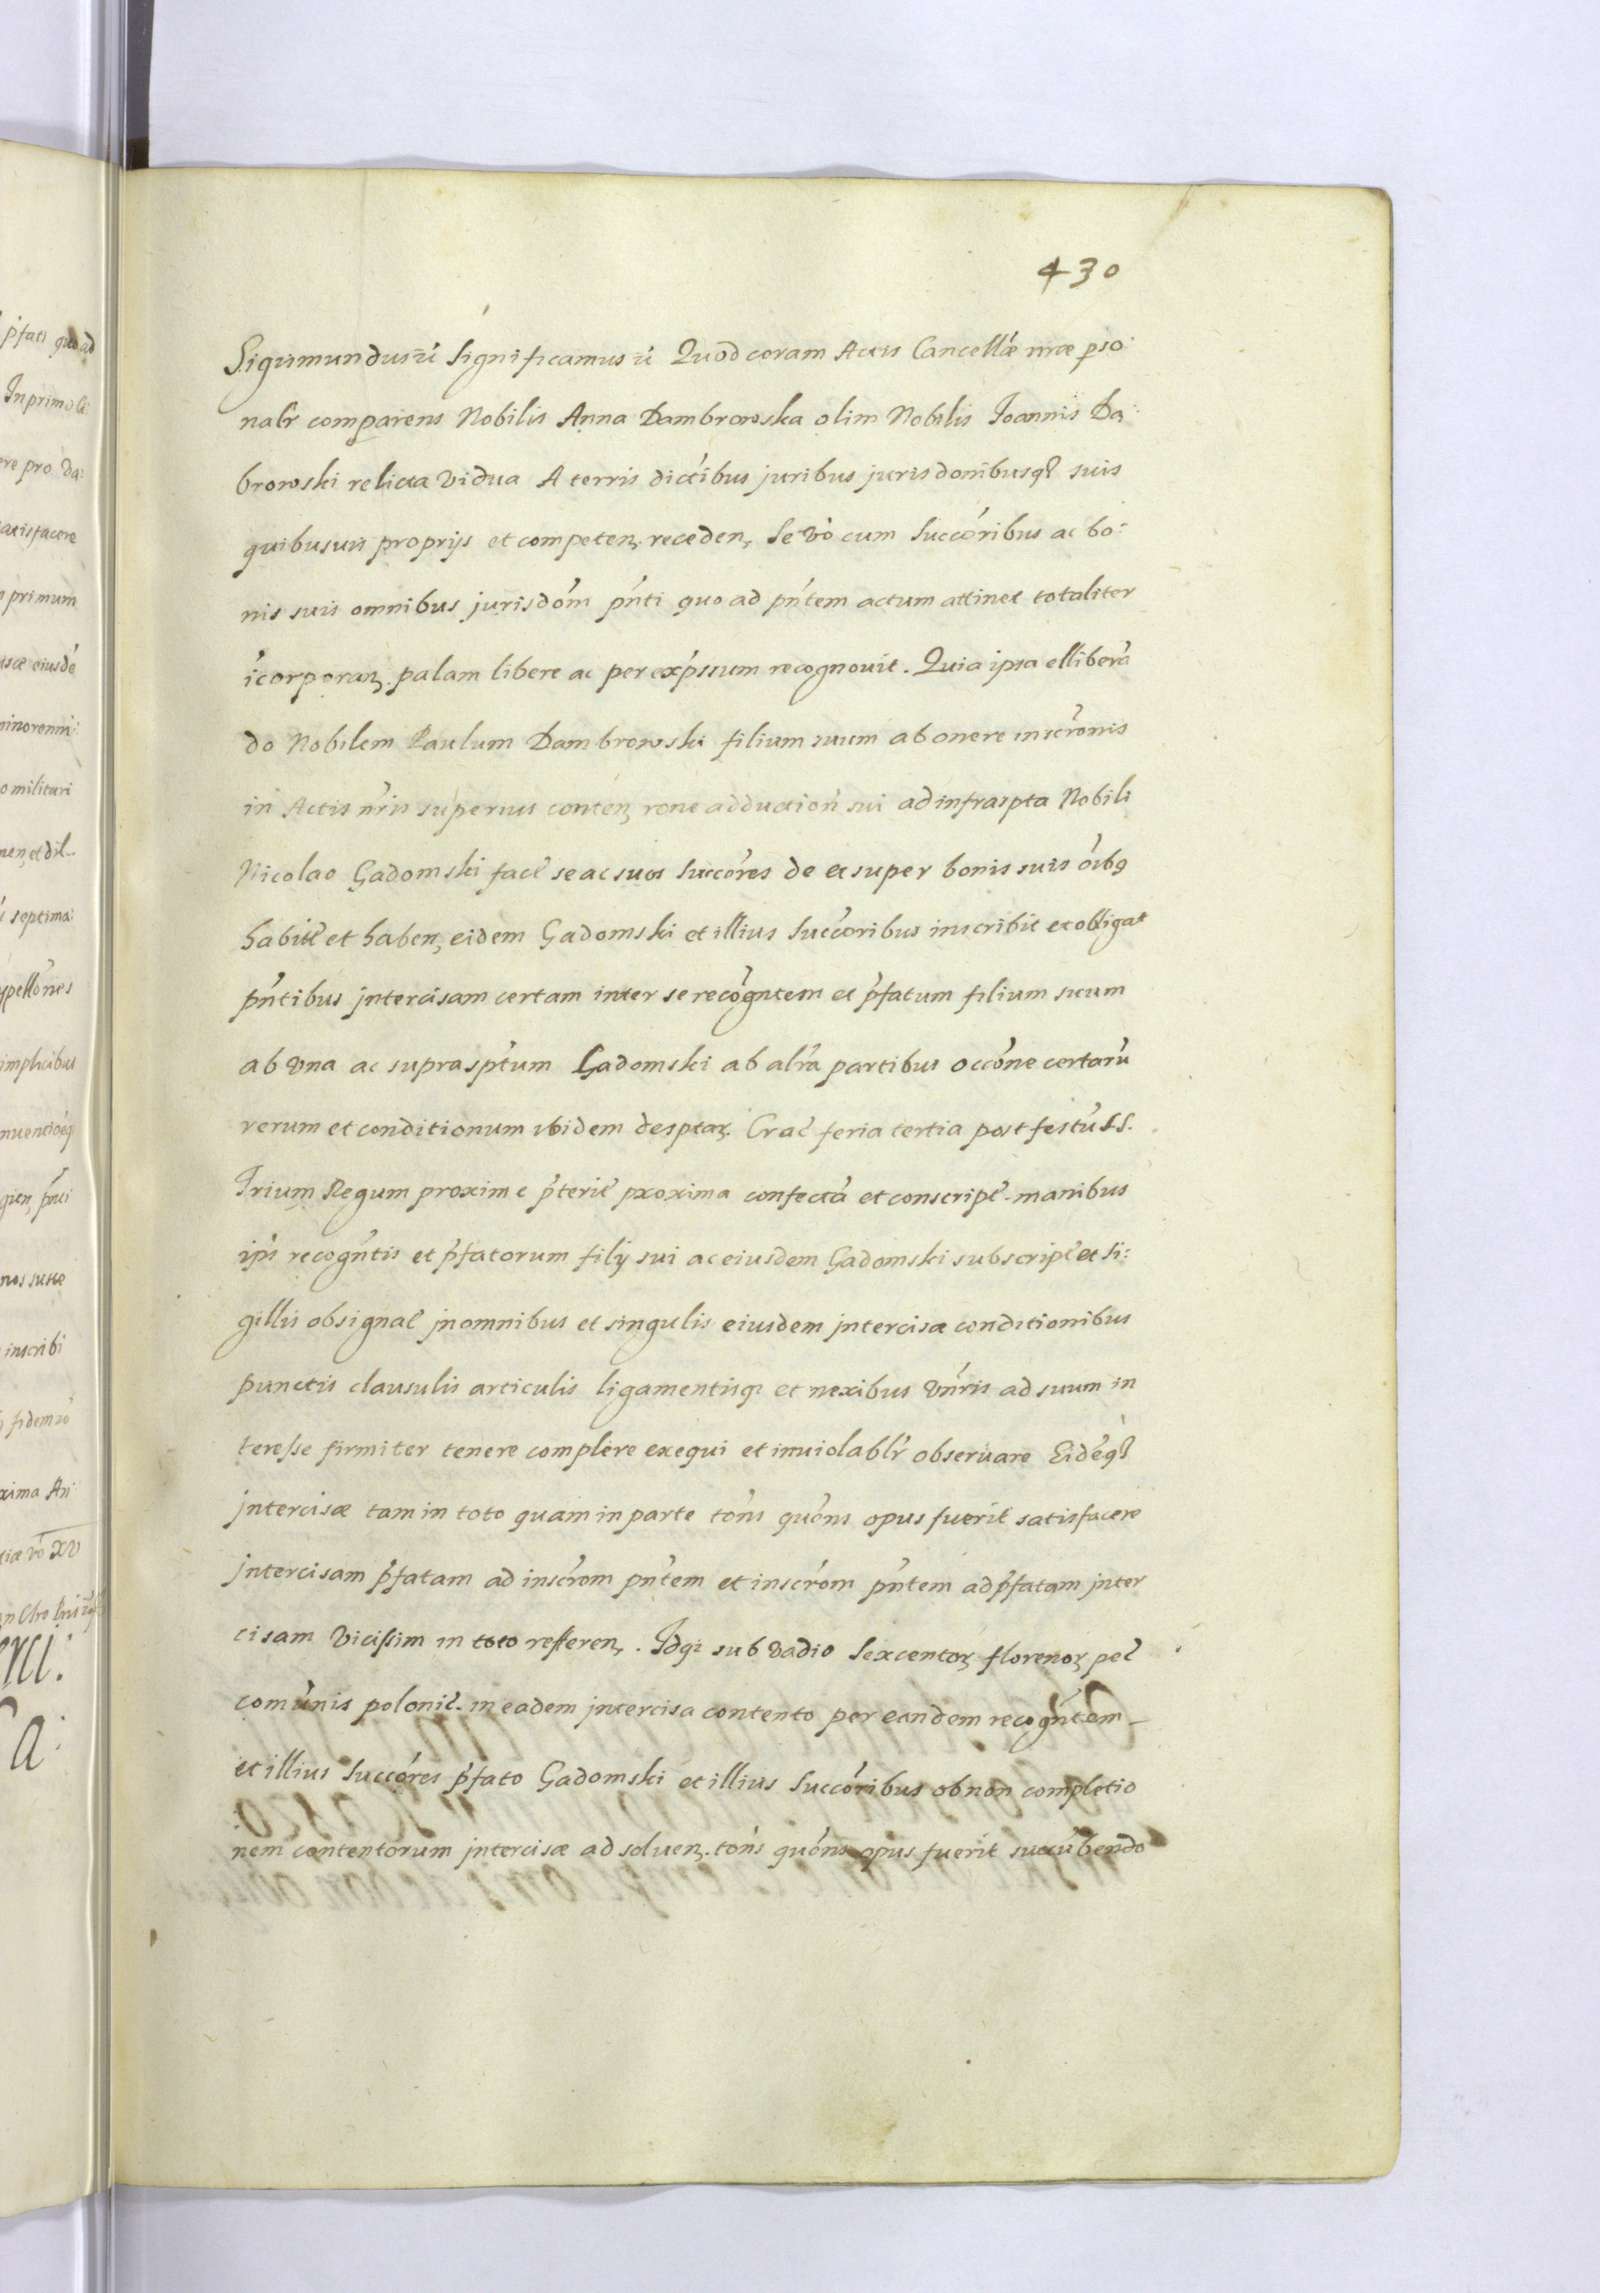 430
Sigismundus ū Significamus ū Quod coram Actis Cancellæ nræ pso:
nalr comparens Nobilis Anna Dambrowska olim Nobilis Joannis Da:
browski relicta vidua A terris dictibus juribus jurisdonibusq3 suis
quibusuis proprijs et competen. receden, Se vo cum Succoribus ac bo:
nis suis omnibus jurisdom pnti quo ad pntem actum attinet totaliter
icorporaz. palam libere ac per expssum recognouit. Quia ipsa ellibera
do Nobilem Paulum Dambrowski filium suum ab onere inscronis
in Actis nris superius conten rone adduction sui ad infraspta Nobili
Nicolao Gadomski fact se ac suos Succores de et super bonis suis oibq
habit et haben, eidem Gadomski et illius Succoribus inscribit et obligat
pntibus jntercisam certam inter se recogntem et pfatum filium suum
ab vna ac suprasptum Gadomski ab alra partibus occone certaru
rerum et conditionum ibidem desptaz. Crac feria tertia post festu SS.
Trium Regum proxime pterit proxima confecta et conscript. manibus
ips recogntis et pfatorum filij sui ac eiusdem Gadomski subscript et si:
gillis obsignat jn omnibus et singulis eiusdem jntercisæ conditionibus
punctis clausulis articulis ligamentisq3 et nexibus vnris ad suum in
teresse firmiter tenere complere exequi et inuiolablr obseruare Eideq3
jntercisæ tam in toto quam in parte tons quons opus fuerit satisfacere
jntercisam pfatam ad inscrom pntem et inscrom pntem ad pfatam jnter
cisam vicissim in toto refferen, . Idq3 sub vadio Sexcentoz florenoz pec
comunis polonic. in eadem jntercisa contento per eandem recogntem
et illius Succores pfato Gadomski et illius Succoribus ob non completio
nem contentorum jntercisæ ad soluen. tons quons opus fuerit succubendo